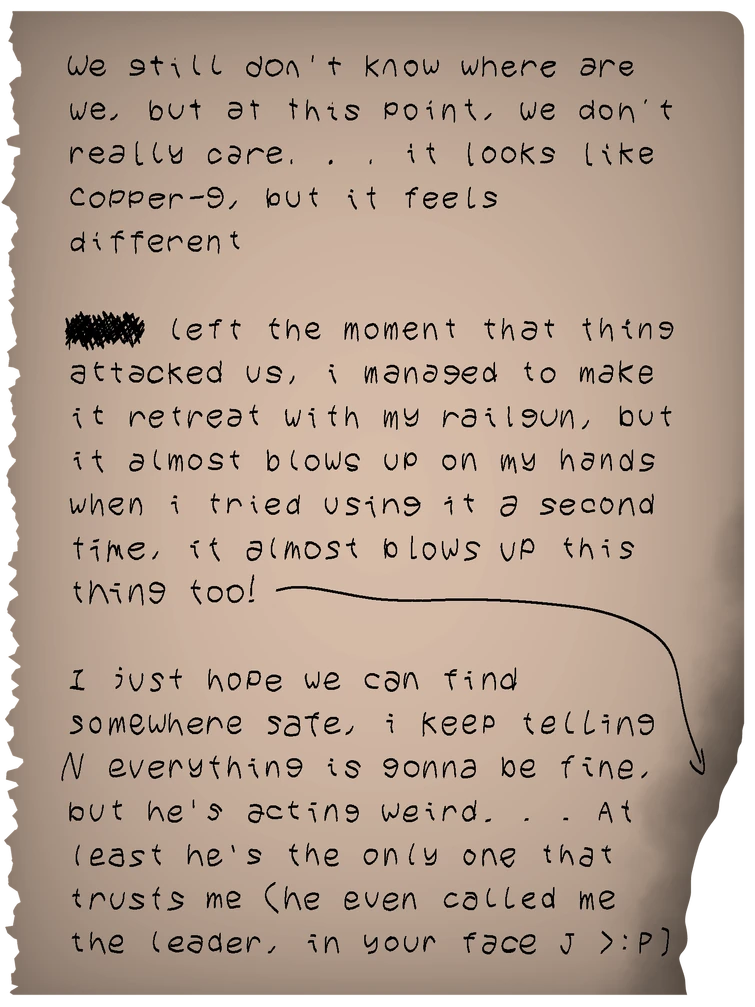 We still don't know where are
we, but at this point, we don't
really care. . . it looks like
Copper-9, but it feels
different
left the moment that thing
attacked us, i managed to make
it retreat with my railgun, but
it almost blows up on my hands
when i tried using it a second
time, it almost blows up this
thing too!
I just hope we can find
somewhere safe, i keep telling
N everything is gonna be fine,
but he's acting weird. . . At
least he's the only one that
trusts me (he even called me
the leader, in your face J >:P)